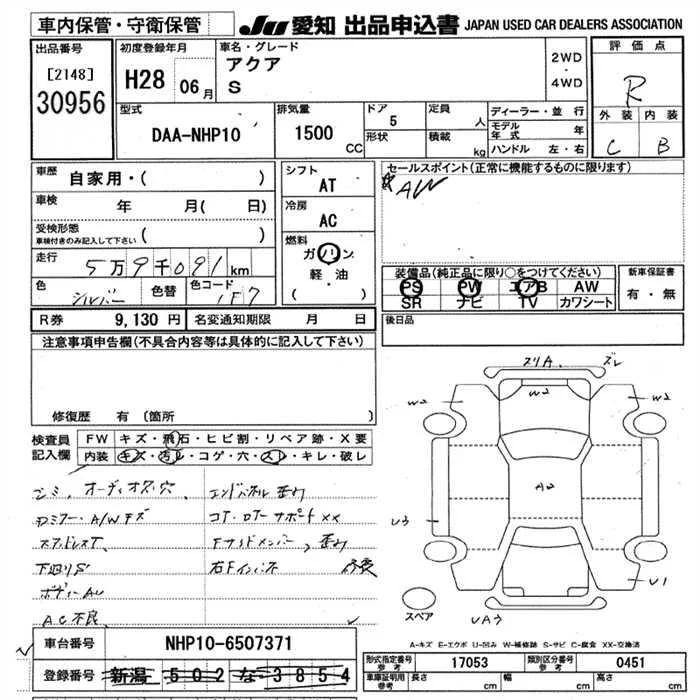 車内保管・守衛保管
JU 愛知 出品申込書 JAPAN USED CAR DEALERS ASSOCIATION
出品番号
[2148]
30956
初度登録年月
H28 06月
車名・グレード
アクア
S
2WD
・
4WD
評価点
R
外装 内装
C B
型式
DAA-NHP10
排気量
1500
CC
ドア
5
形状
定員
人
積載
kg
ディーラー・並行
モデル年式 年
ハンドル 左・右
車歴
自家用・( )
車検
年 月( 日)
受検形態
車検付きのみ記入して下さい ( )
走行
5万9千091km
色
シルバー
色替
色コード
1F7
シフト
AT
冷房
AC
燃料
ガソリン
軽・油
( )
セールスポイント(正常に機能するものに限ります)
AW
装備品(純正品に限り○をつけてください)
PS PW エアB AW
SR ナビ TV カワシート
新車保証書
有・無
後日品
R券 9,130円 名変通知期限 月 日
注意事項申告欄(不具合内容等は具体的に記入して下さい)
修復歴 有(箇所
検査員記入欄
FW キズ・飛石・ヒビ割・リペア跡・X要
内装 キズ・汚レ・コゲ・穴・スレ・キレ・破レ
オーディオス穴
A/Wキズ
コア・ロアーサポート XX
下廻りS
右Fインパネ
AC不良
スリA. ズレ
W2
W2
W2
A2
U3
U1
UA3
スペア
A-キズ E-エクボ U-凹み W-補修跡 S-サビ C-腐食 XX-交換済
車台番号 NHP10-6507371
登録番号 新潟 502 な 3854
形式指定番号 参考 17053 類別区分番号 参考 0451
車庫証明用 参考 長さ cm 幅 cm 高さ cm